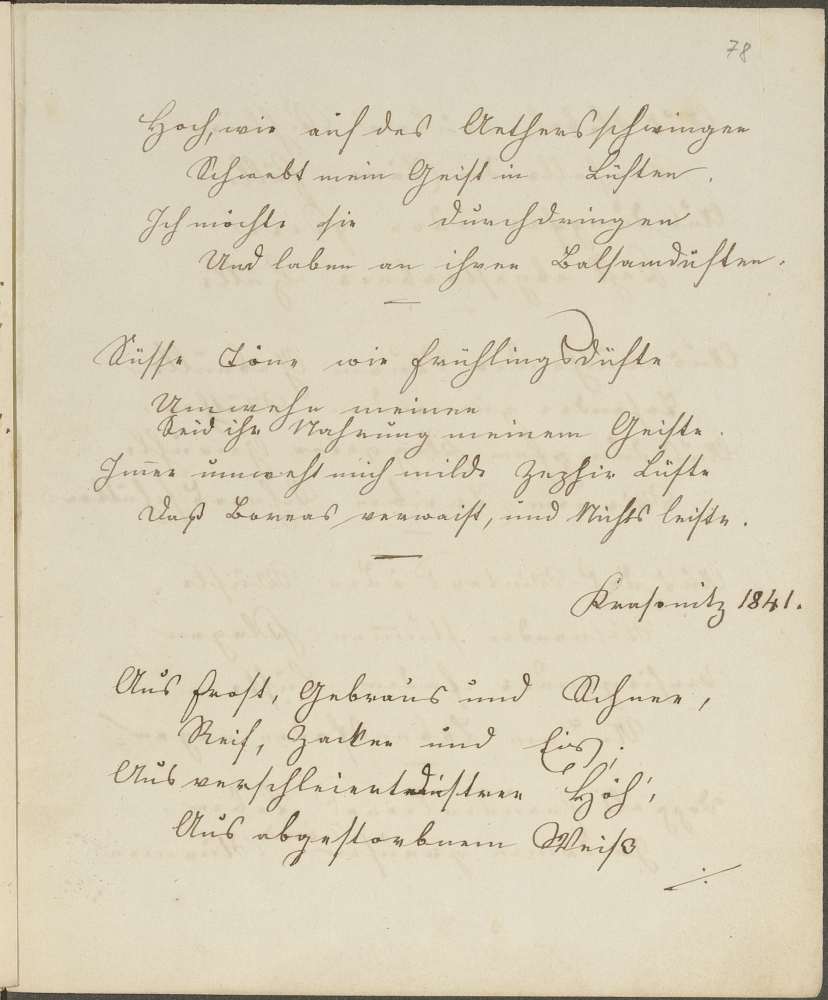 78
Hoch, wie auf des Aethersschwingen
Schwebt mein Geist in Lüften.
Ich möchte sie durchdringen
Und laben an ihren Balsamdüften.
Süsse Töne wie Frühlingsdüfte
Umwehn meinen
Seid ihr Nahrung meinem Geiste.
Im̄er umweht mich milde Zephir Lüfte
Daß Boreas verwaist, und Nichts leiste.
Krasonitz 1841.
Aus Frost, Gebräus und Schnee,
Reif, Zacken und Eis;
Aus verschleiert düstren Höh',
Aus abgestorbnem Weiß